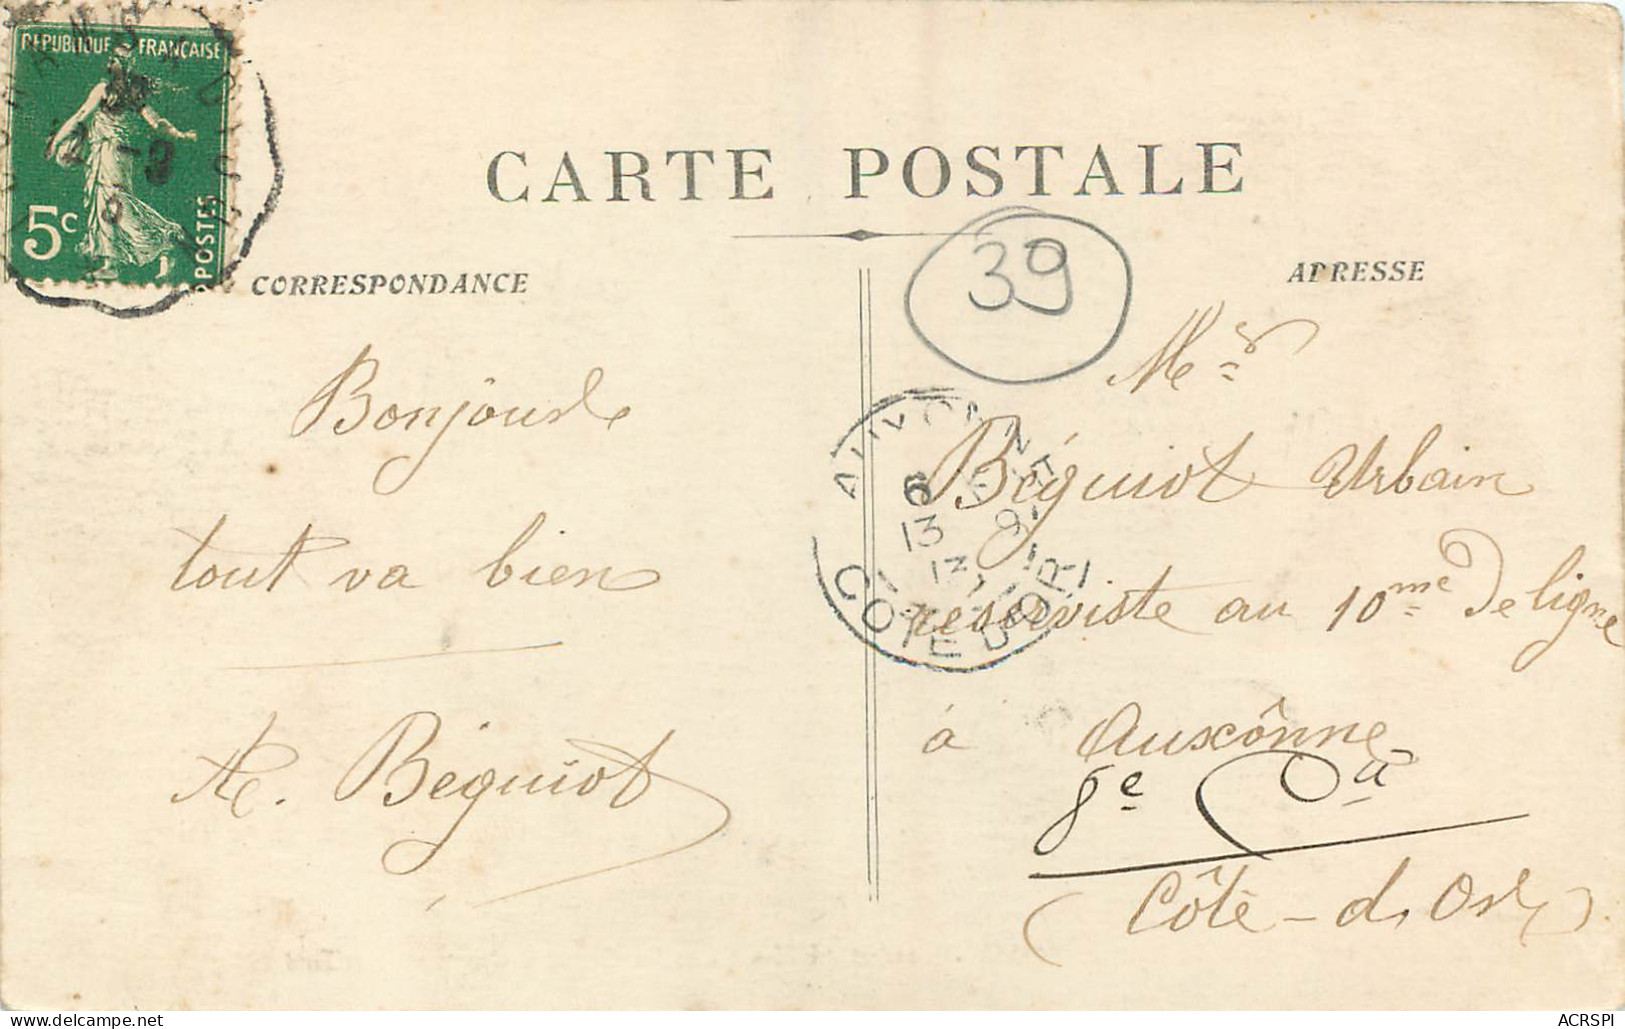 REPUBLIQUE FRANÇAISE
5c
POSTES
CARTE POSTALE
39
CORRESPONDANCE
ADRESSE
Bonjour
tout va bien
A. Béguiot
Mr
Béguiot Urbain
reserviste au 10me De ligne
à Auxônne
8e Cie
(Côte-d'Or)
AUXONNE
6
13 9
13
COTE D'OR
12 -9
ACRSPI